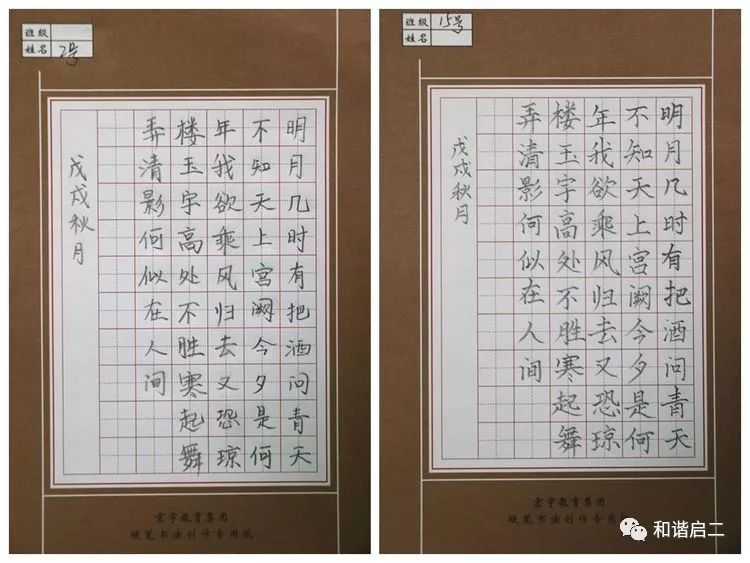 班级
姓名 2号
明月几时有把酒问青天
不知天上宫阙今夕是何
年我欲乘风归去又恐琼
楼玉宇高处不胜寒起舞
弄清影何似在人间
戊戌秋月
宏宇教育集团
硬笔书法创作专用纸
班级 15号
姓名
明月几时有把酒问青天
不知天上宫阙今夕是何
年我欲乘风归去又恐琼
楼玉宇高处不胜寒起舞
弄清影何似在人间
戊戌秋月
宏宇教育集团
硬笔书法创作专用纸
和谐启二